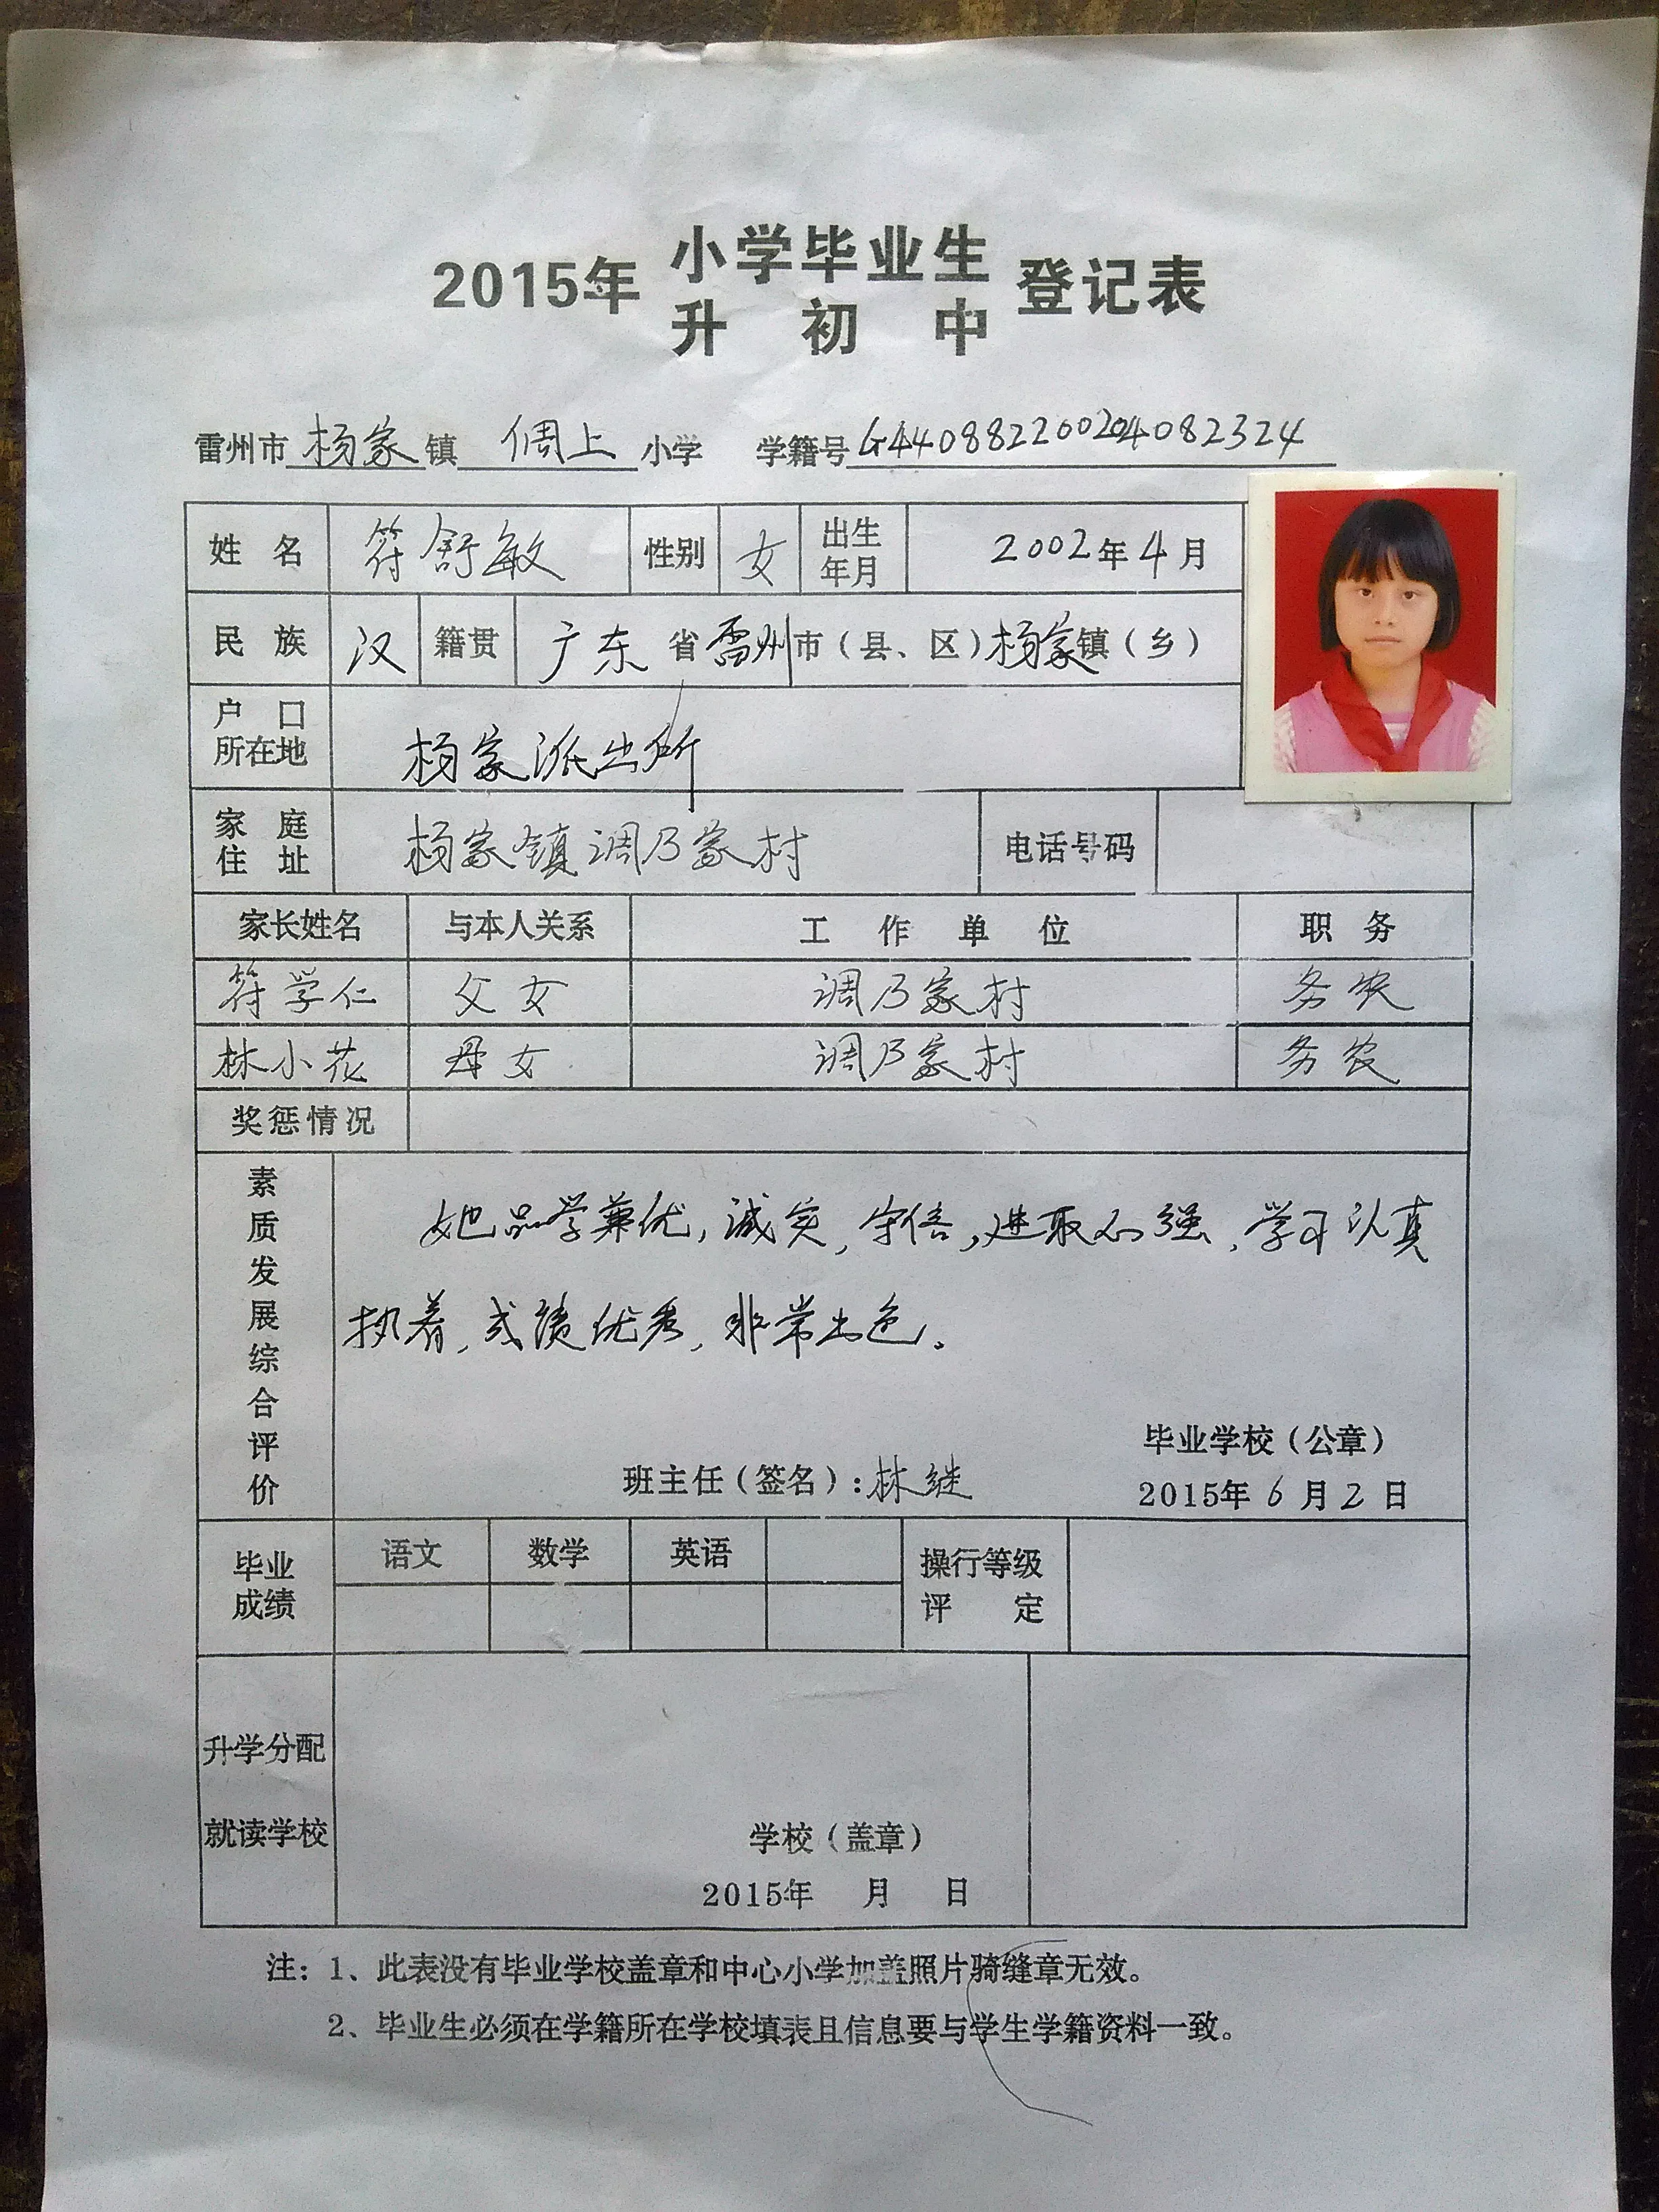 2015年 小学毕业生 登记表
升初中
雷州市杨家镇 倜上 小学 学籍号 G440882200204082324
姓名 符舒敏 性别 女 出生年月 2002年4月
民族 汉 籍贯 广东省雷州市(县、区)杨家镇(乡)
户口所在地 杨家派出所
家庭住址 杨家镇调乃家村 电话号码
家长姓名 与本人关系 工作单位 职务
符学仁 父女 调乃家村 务农
林小花 母女 调乃家村 务农
奖惩情况
素质发展综合评价
她品学兼优,诚实,守信,进取心强,学习认真
执着,成绩优秀,非常出色。
毕业学校(公章)
班主任(签名):林继 2015年6月2日
毕业成绩 语文 数学 英语 操行等级评定
升学分配
就读学校
学校(盖章)
2015年 月 日
注:1、此表没有毕业学校盖章和中心小学加盖照片骑缝章无效。
2、毕业生必须在学籍所在学校填表且信息要与学生学籍资料一致。